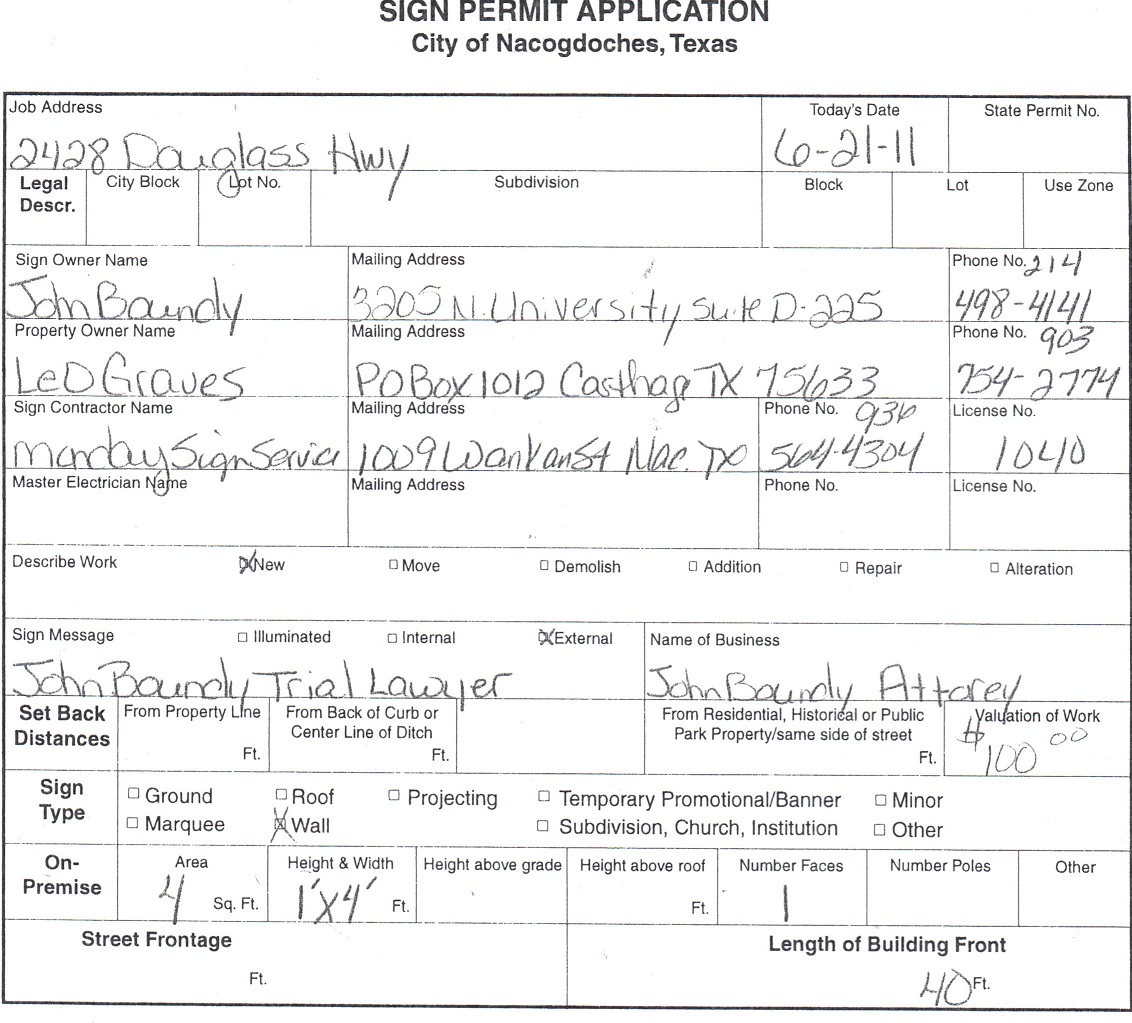 SIGN PERMIT APPLICATION
City of Nacogdoches, Texas
Job Address
Today's Date
State Permit No.
2428 Douglass Hwy
6-21-11
Legal Descr.
City Block
Lot No.
Subdivision
Block
Lot
Use Zone
Sign Owner Name
Mailing Address
Phone No. 214
John Boundy
3205 N. University Suite D-225
498-4141
Property Owner Name
Mailing Address
Phone No. 903
Leo Graves
PO Box 1012 Casthage TX 75633
754-2774
Sign Contractor Name
Mailing Address
Phone No. 936
License No.
Monday Sign Service
1009 St Nac. TX
564-4304
1040
Master Electrician Name
Mailing Address
Phone No.
License No.
Describe Work
New
Move
Demolish
Addition
Repair
Alteration
Sign Message
Illuminated
Internal
External
Name of Business
John Boundy Trial Lawyer
John Boundy Attorey
Set Back Distances
From Property Line
Ft.
From Back of Curb or
Center Line of Ditch
Ft.
From Residential, Historical or Public
Park Property/same side of street
Ft.
Valuation of Work
$100 00
Sign Type
Ground
Roof
Projecting
Temporary Promotional/Banner
Minor
Marquee
Wall
Subdivision, Church, Institution
Other
On-Premise
Area
4 Sq. Ft.
Height & Width
1'x4' Ft.
Height above grade
Height above roof
Ft.
Number Faces
1
Number Poles
Other
Street Frontage
Ft.
Length of Building Front
40 Ft.